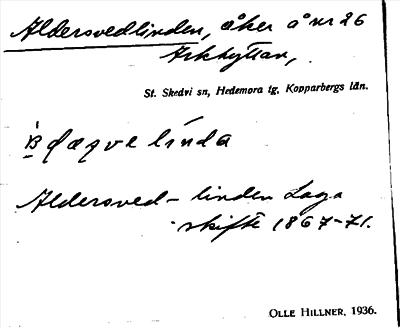 Aldersvedlinden, åker å nr 26
Arkhyttan,
St. Skedvi sn, Hedemora tg, Kopparbergs län.
linda
Aldersved-linden Laga
skifte 1867-71.
OLLE HILLNER, 1936.